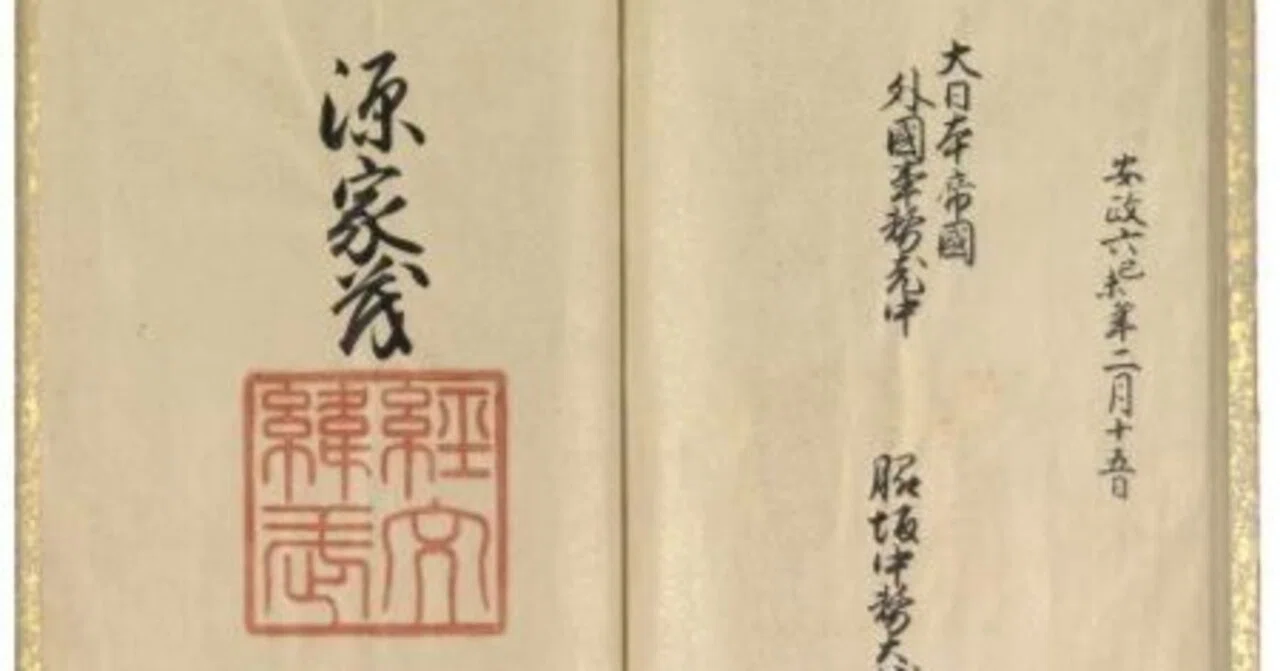 安政六己未年二月十五日
大日本帝國
外國事務老中
脇坂中務大
源家茂
經文
緯武